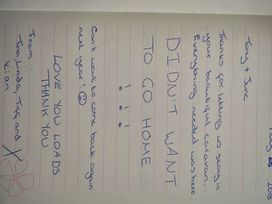 Tony & June
Thanks for letting us stay in
your beautiful caravan.
Everything needed was here
DIDN'T WANT
TO GO HOME
!!!
Can't wait to come back again
next year!
LOVE YOU LOADS
THANK YOU
From
Tom, Linda, Tia and
Kian X